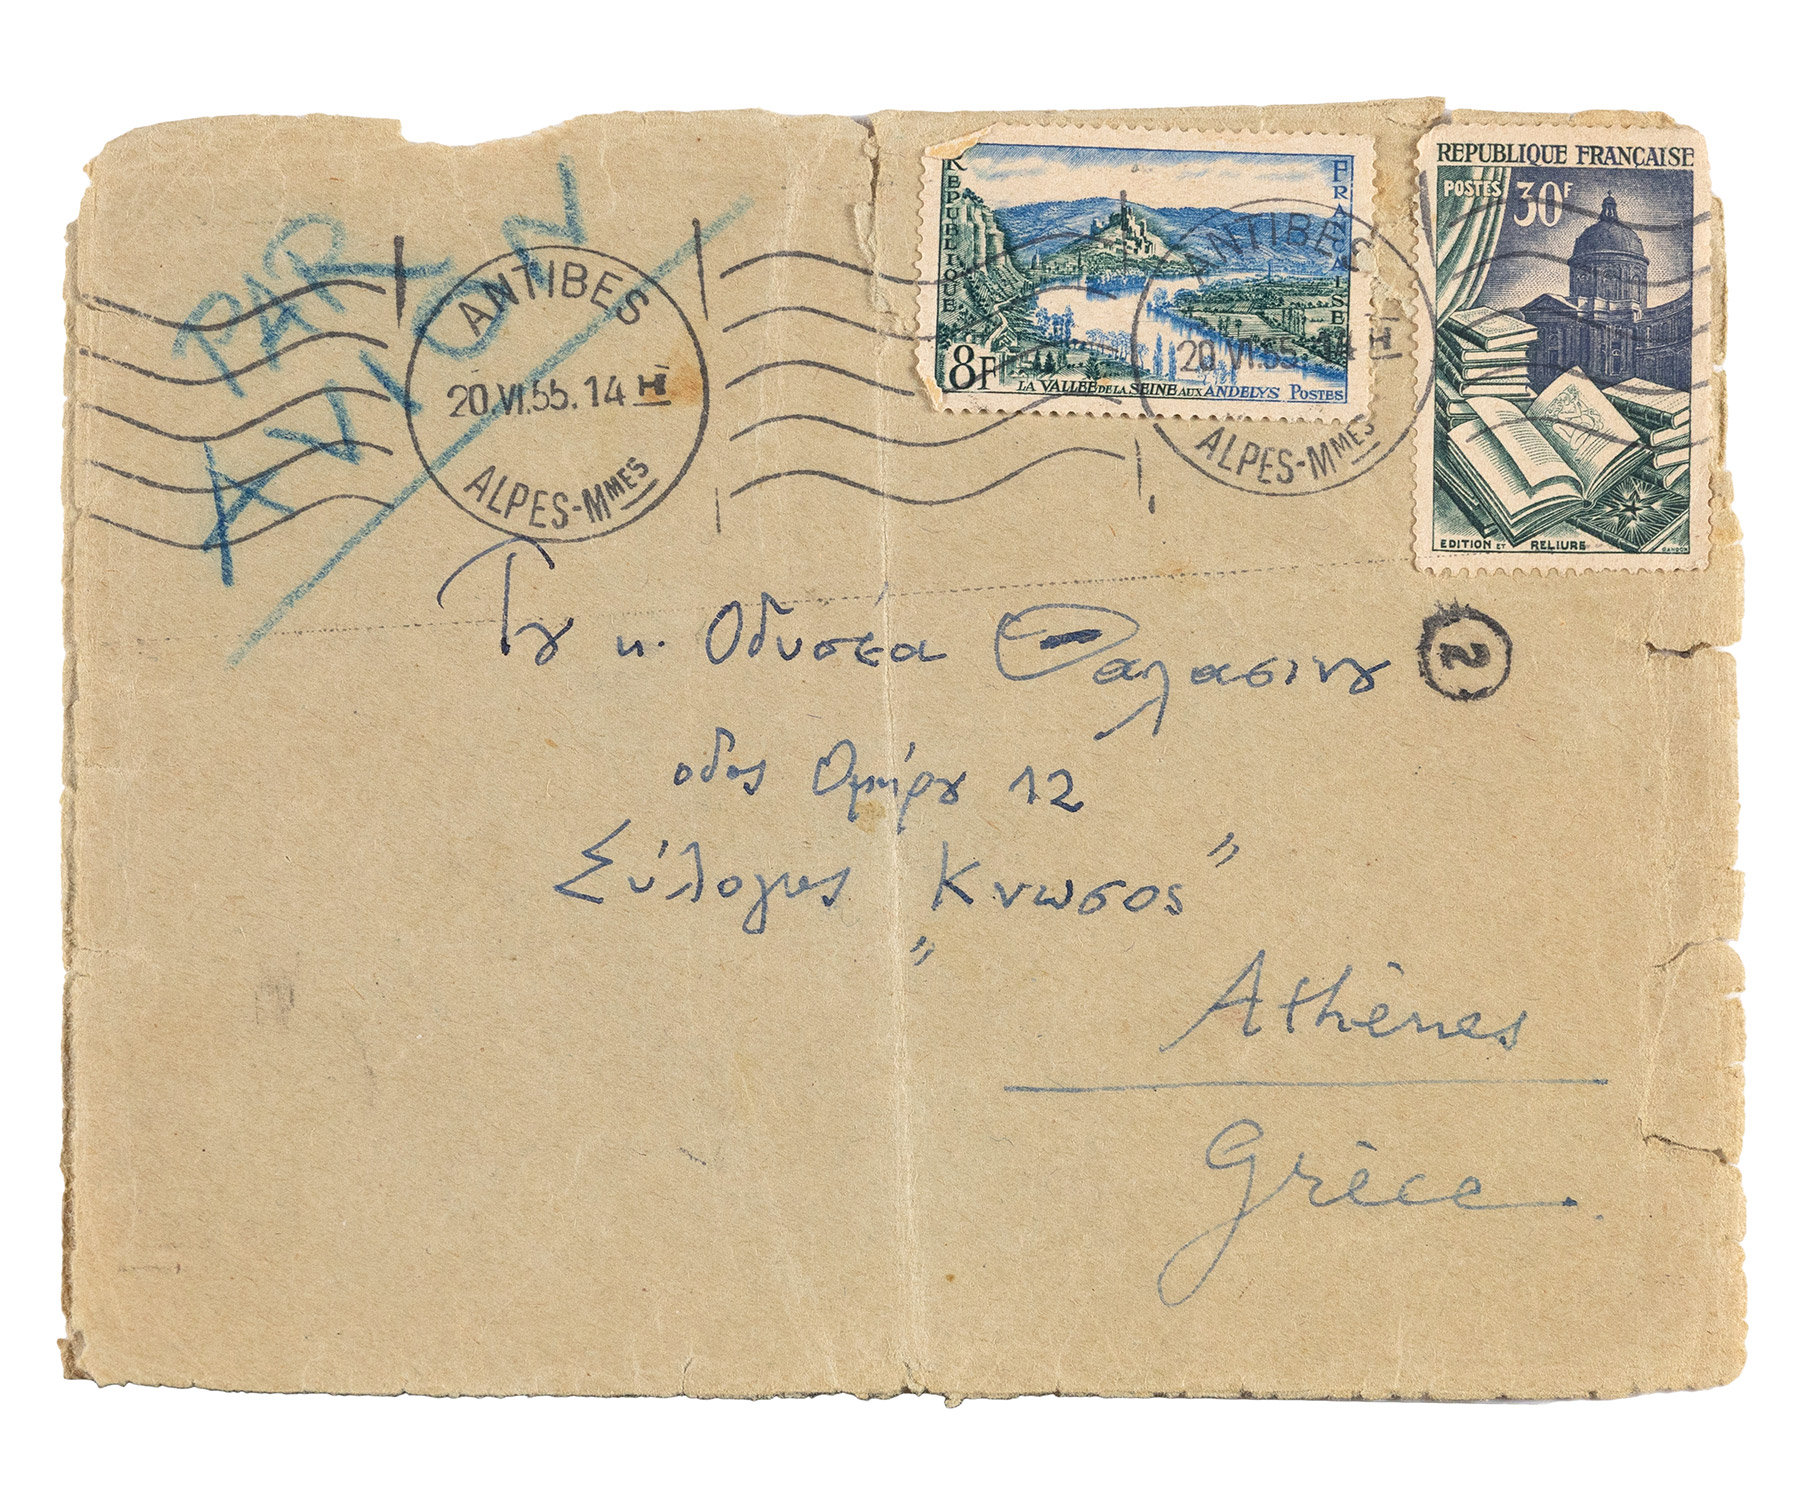 PAR
AVION
ANTIBES
20.VI.55.14 H
ALPES-MMES
REPUBLIQUE FRANÇAISE
8F
LA VALLÉE DE LA SEINE AUX ANDELYS POSTES
ANTIBES
20.VI.55.14 H
ALPES-MMES
REPUBLIQUE FRANÇAISE
POSTES 30F
EDITION ET RELIURE
GANDON
Τȣ κ. Οδυσέα Θαλασινȣ
2
οδος Ομήρȣ 12
Σύλογος "Κνωσος"
Athènes
Grèce.